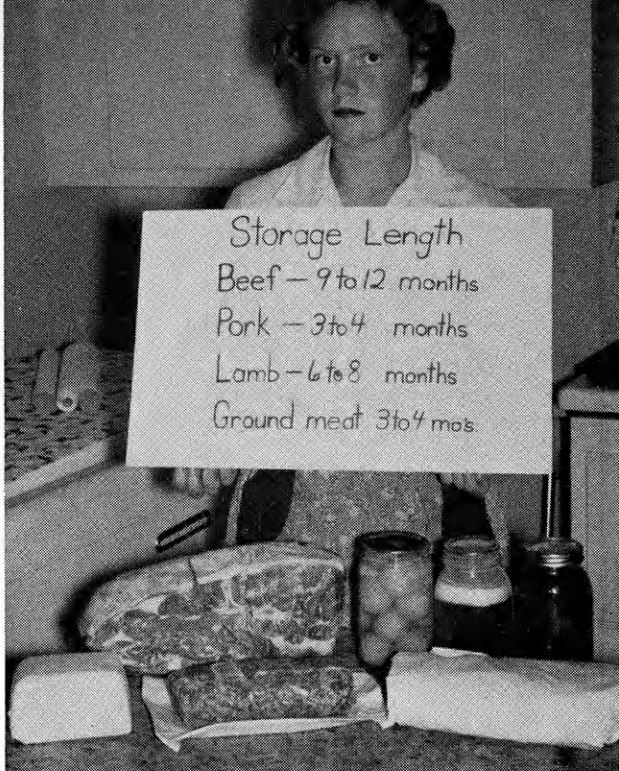 Storage Length
Beef – 9 to 12 months
Pork – 3 to 4 months
Lamb – 6 to 8 months
Ground meat 3 to 4 mo's.